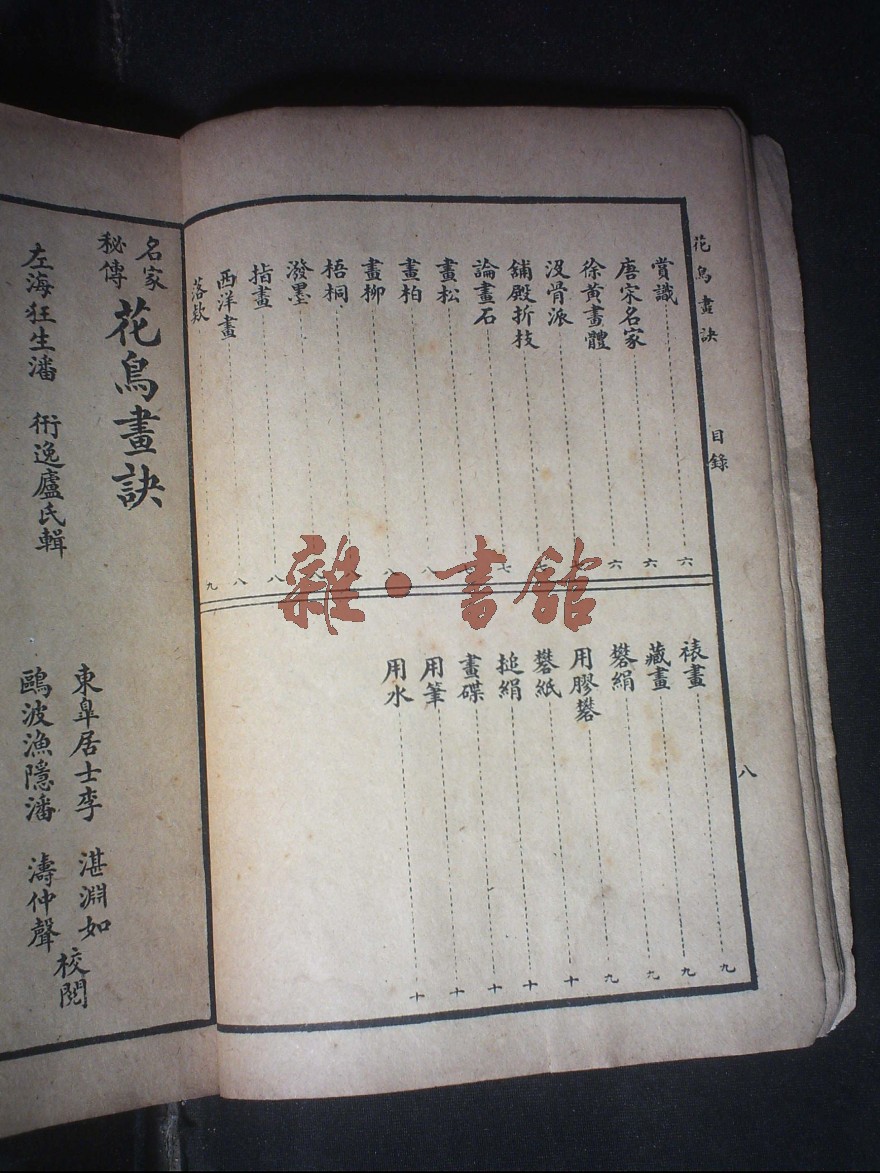 花鳥畫訣 目錄 八
賞識 六
唐宋名家 六
徐黃畫體 六
沒骨派
舖殿折枝
論畫石 七
畫松
畫柏 八
畫柳 八
梧桐 八
潑墨 八
指畫 八
西洋畫 八
落欵 九
裱畫 九
藏畫 九
礬絹 九
用膠礬 九
礬紙 十
搥絹 十
畫碟 十
用筆 十
用水 十
名家
秘傳
花鳥畫訣
東臯居士李 湛淵如
左海狂生潘 衎逸廬氏輯
鷗波漁隱潘 濤仲聲
校閱
雜·書舘